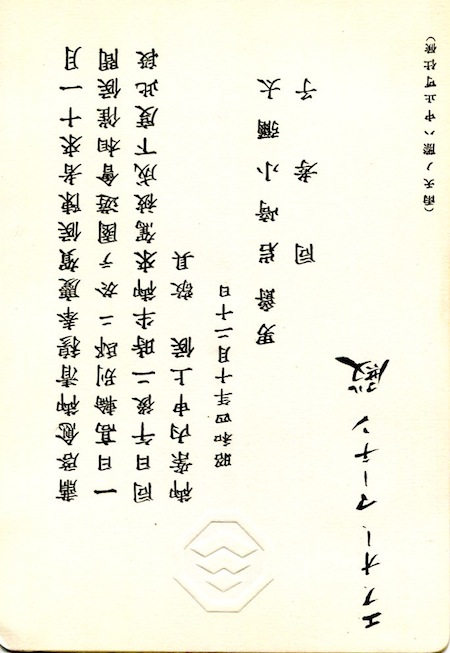 肅啓愈御清穆奉慶賀候陳者來十一月
一日高輪別邸ニ於テ園遊會相催候間
同日午後二時半御來駕被成下度此段
御案内申上候 敬具
昭和四年十月二十日
男爵 岩崎小彌太
同 孝子
エフオーマーチン殿
(雨天ノ際ハ中止可仕候)